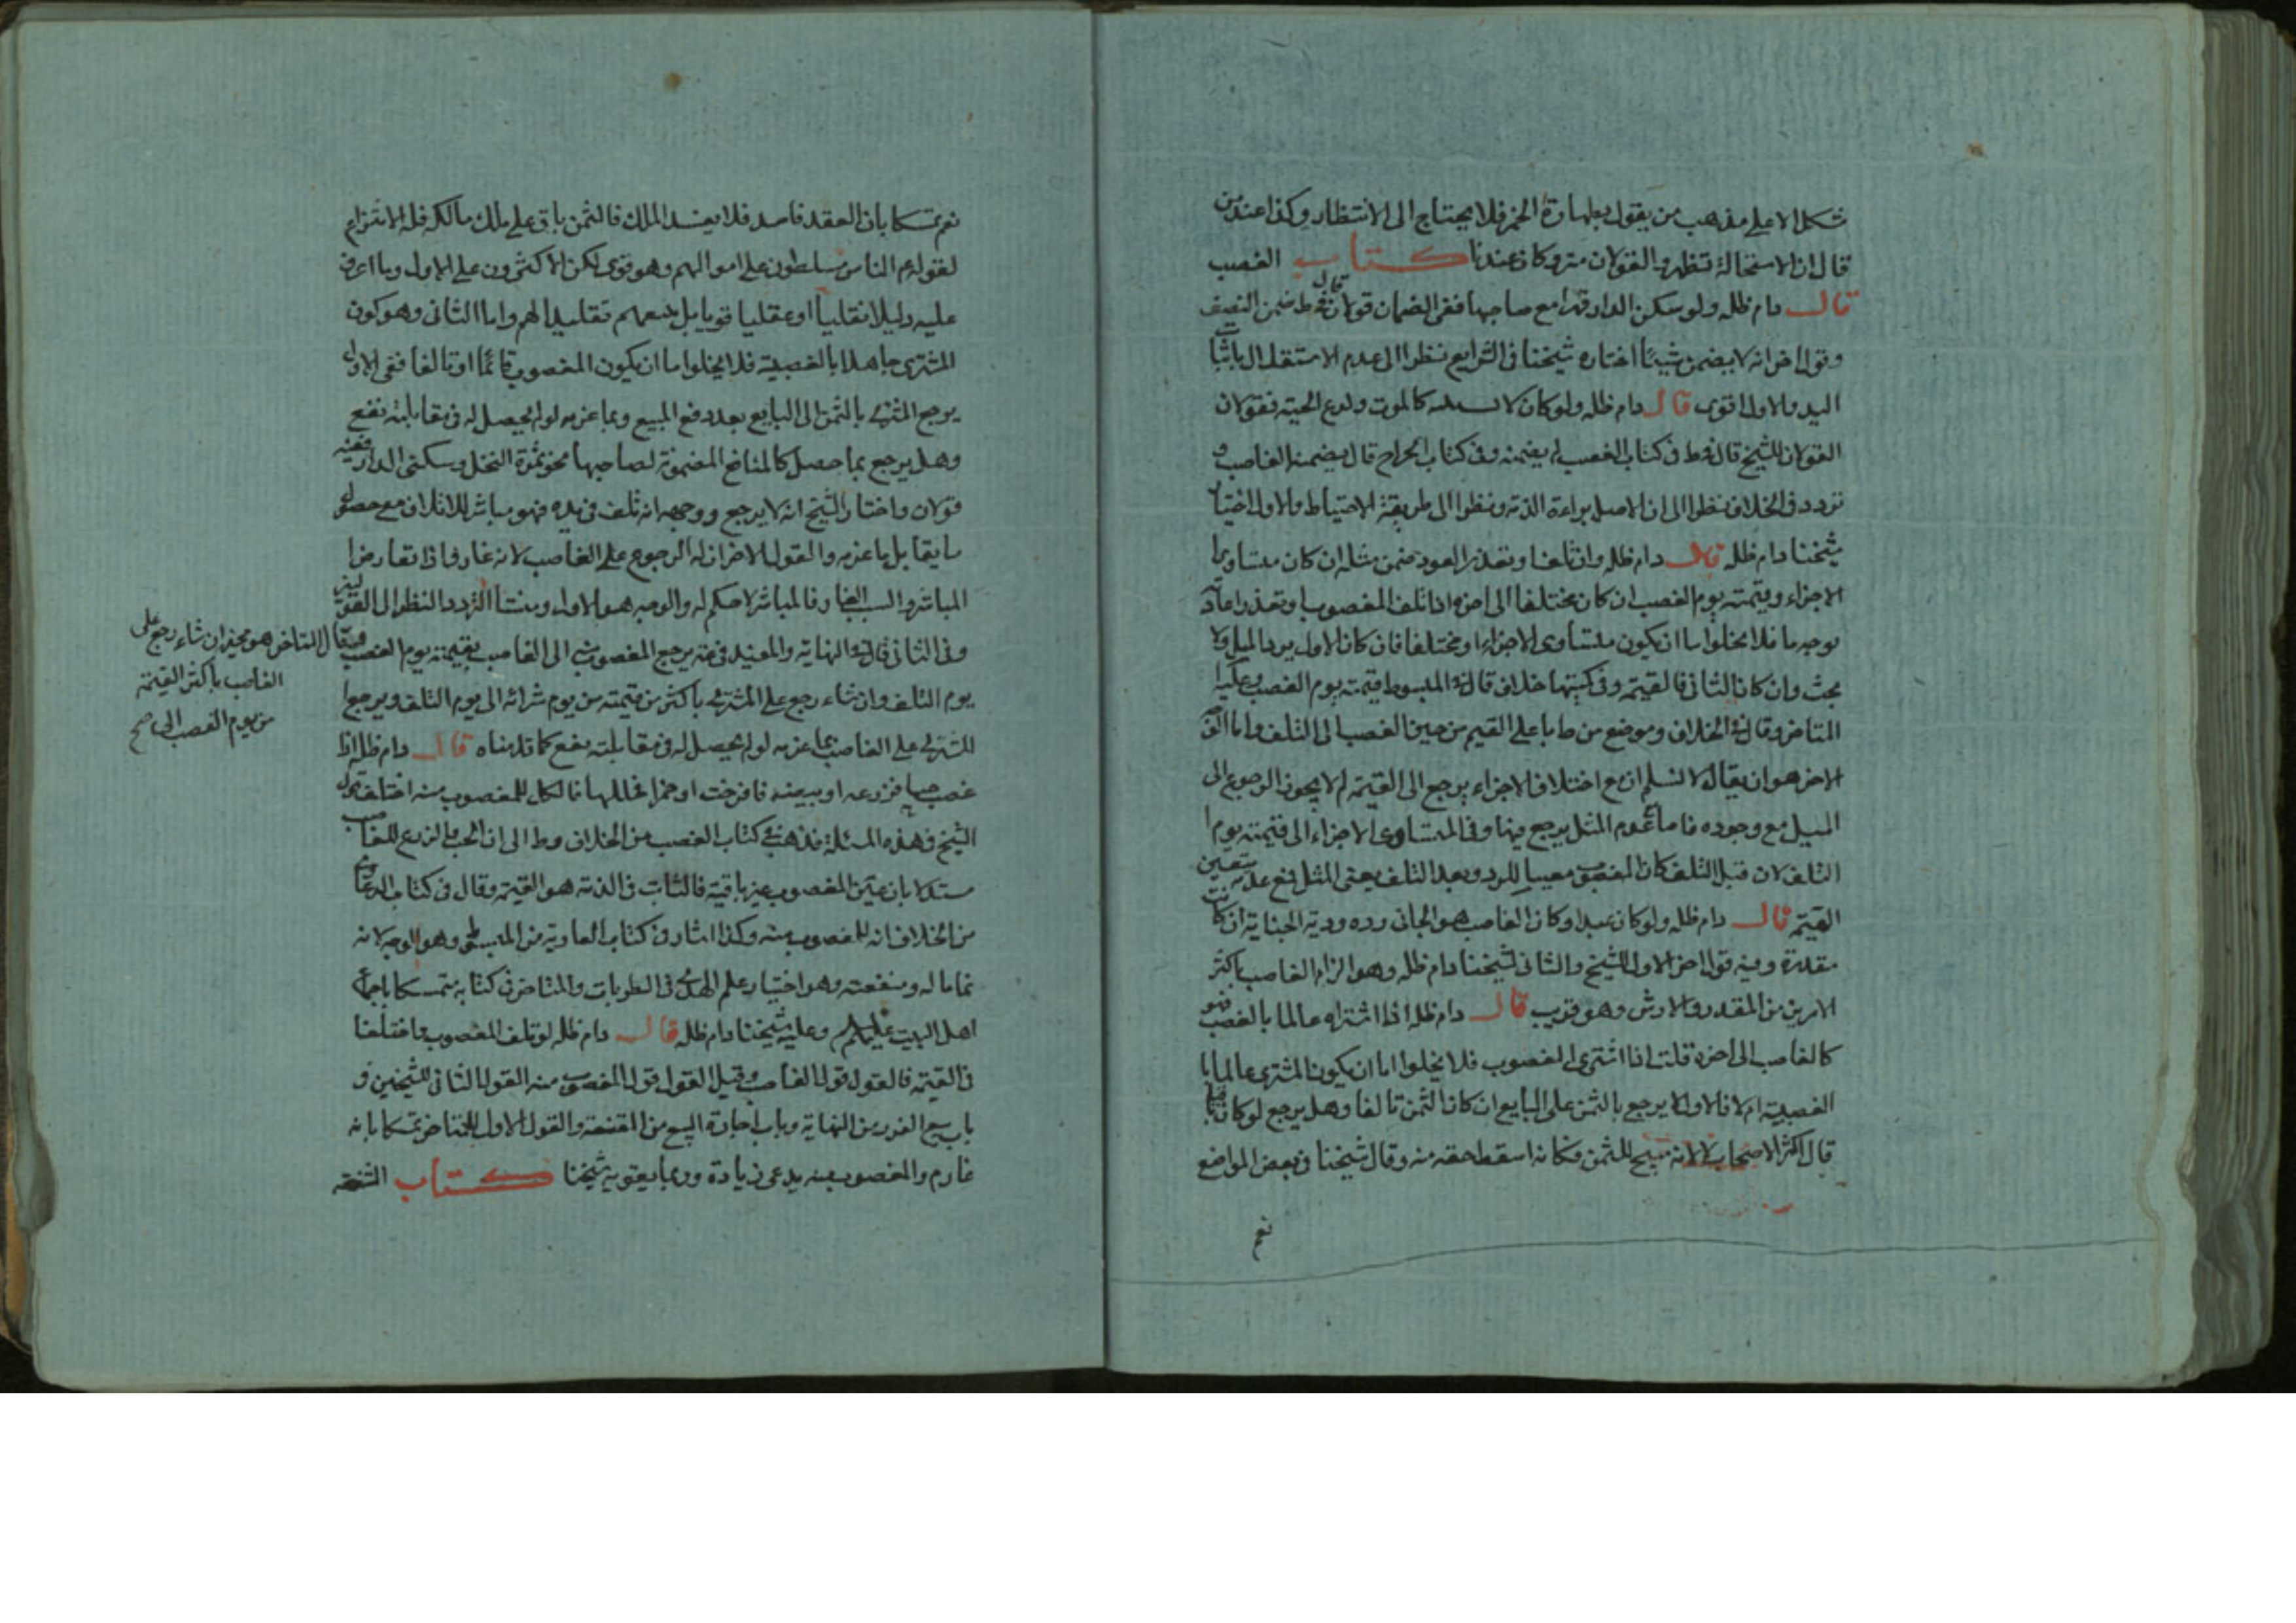 شكل الا على مذهب من يقول بطهارة الخمر فلا يحتاج الى الانتظار وكذا عند من
قال ان الاستحالة تطهر والقولان متروكان عندنا كتاب الغصب
قال دام ظله ولو سكن الدار قهرا مع صاحبها ففى الضمان قولان قال فى ط ضمن النصف
وقول اخر انه لا يضمن شيئا اختاره شيخنا فى الشرايع نظرا الى عدم الاستقلال باثبات
اليد والاول اقوى قال دام ظله ولو كان لا بسببه كالموت ولدغ الحية فقولان
القولان للشيخ قال فى ط فى كتاب الغصب لم يضمنه وفى كتاب الجراح قال يضمنه الغاصب و
تردد فى الخلاف نظرا الى ان الاصل براءة الذمة ونظرا الى طريقة الاحتياط والاول اختيار
شيخنا دام ظله قال دام ظله وان تلفا وتعذر العود ضمن مثله ان كان متساوى
الاجزاء وقيمته يوم الغصب ان كان مختلفا الى اخره اذا تلف المغصوب او تعذر اعادته
بوجه ما فلا يخلوا اما ان يكون متساوى الاجزاء او مختلفا فان كان الاول يرد المثل ولا
بحث وان كان الثانى فالقيمة وفى كميتها خلاف قال فى المبسوط قيمته يوم الغصب وعليه
المتاخر وقال فى الخلاف وموضع من ط باعلى القيم من حين الغصب الى التلف واما القول
الاخر هو ان يقال لا نسلم ان مع اختلاف الاجزاء يرجع الى القيمة لم لا يجوز الرجوع الى
المثل مع وجوده فاما مع عدم المثل يرجع فيها وفى المتساوى الاجزاء الى قيمته يوم
التلف لان قبل التلف كان المغصوب معينا للرد وبعد التلف يعنى المثل فمع عدمه تتعين
القيمة قال دام ظله ولو كان عبدا وكان الغاصب هو الجانى رده ودية الجناية ان كانت
مقدرة وفيه قول اخر الاول للشيخ والثانى لشيخنا دام ظله وهو الزام الغاصب باكثر
الامرين من المقدر والارش وهو قريب قال دام ظله اذا اشتراه عالما بالغصب فهو
كالغاصب الى اخره قلت اذا اشترى المغصوب فلا يخلوا اما ان يكون المشترى عالما با
لغصبية ام لا فالاول لا يرجع بالثمن على البايع ان كان الثمن تالفا وهل يرجع لو كان باقيا
قال اكثر الاصحاب لا لانه مبيح للثمن فكانه اسقط حقه منه وقال شيخنا فى بعض المواضع
نعم
نعم تمسكا بان العقد فاسد فلا يفيد الملك فالثمن باق على ملك مالكه فله الانتزاع
لقوله م الناس مسلطون على اموالهم وهو قوى لكن الاكثرون على الاول وما اعرف
عليه دليلا نقليا او عقليا قويا بل بدعهم تقليدا لهم واما الثانى وهو كون
المشترى جاهلا بالغصبية فلا يخلوا اما ان يكون المغصوب قائما او تالفا ففى الاول
يرجع المشترى بالثمن الى البايع بعد دفع المبيع وبما غرمه لو لم يحصل له فى مقابلته نفع
وهل يرجع بما حصل كالمنافع المضمونة لصاحبها نحو ثمرة النخل وسكنى الدار ففيه
قولان واختار الشيخ انه لا يرجع ووجهه انه تلف فى يده فهو مباشر للاتلاف مع حصول
ما يقابل ما غرمه والقول الاخر ان له الرجوع على الغاصب لانه غار فاذا تعارض
المباشر والسبب الغار فالمباشر لا حكم له والوجه هو الاول ومنشأ التردد النظر الى القولين
وفى الثانى قال فى النهاية والمفيد فى مقنعته يرجع المغصوب منه الى الغاصب بقيمته يوم الغصب
يوم التلف وان شاء رجع على المشترى باكثر من قيمته من يوم شرائه الى يوم التلف ويرجع
المشترى على الغاصب بما غرمه لو لم يحصل له فى مقابلته نفع كما قدمناه قال دام ظله اذا
غصب حبا فزرعه او بيضة فافرخت او خمرا فخللها فالكل للمغصوب منه اختلف قول
الشيخ فى هذه المسئلة فذهب فى كتاب الغصب من الخلاف و ط الى ان الحب والزرع للغاصب
مستدلا بان عين المغصوب غير باقية فالثابت فى الذمة هو القيمة وقال فى كتاب الدعاوى
من الخلاف انه للمغصوب منه وكذا اشار فى كتاب العارية من المبسوط وهو الوجه لانه
نما ماله ومنفعته وهو اختيار علم الهدى فى الطبريات والمتاخر فى كتابه متمسكا باجماع
اهل البيت عليهم السلام وعليه شيخنا دام ظله قال دام ظله لو تلف المغصوب واختلفا
فى القيمة فالقول قول الغاصب وقيل القول قول المغصوب منه القول الثانى للشيخين فى
باب بيع الغرر من النهاية وباب اجازة البيع من المقنعة والقول الاول للمتاخر تمسكا بانه
غارم والمغصوب منه يدعى زيادة وربما يقويه شيخنا كتاب الشفعة
وقال المتاخر هو مخير ان شاء رجع على
الغاصب باكثر القيمة
من يوم الغصب الى صح